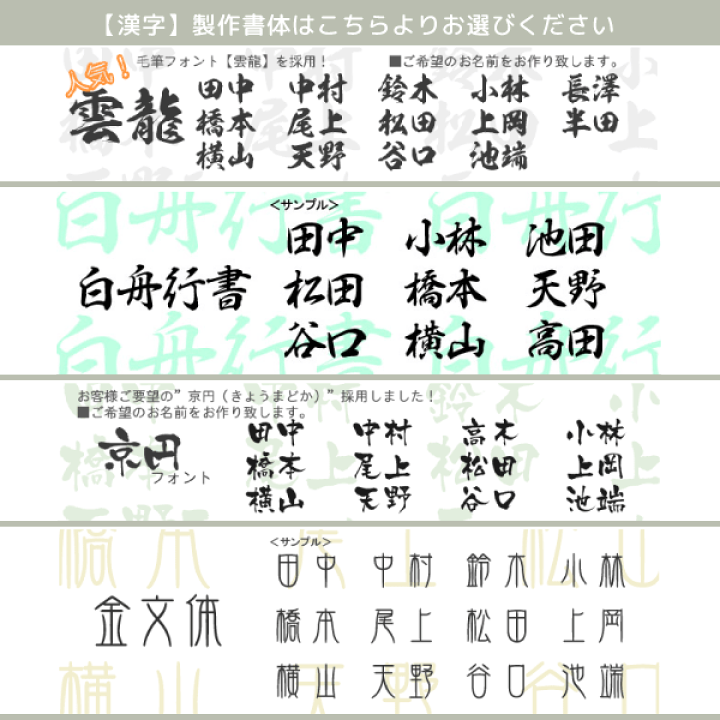 【漢字】製作書体はこちらよりお選びください
人気！
毛筆フォント【雲龍】を採用！
■ご希望のお名前をお作り致します。
雲龍
田中 中村 鈴木 小林 長澤
橋本 尾上 松田 上岡 半田
横山 天野 谷口 池端
白舟行書
＜サンプル＞
田中 小林 池田
松田 橋本 天野
谷口 横山 高田
お客様ご要望の”京円（きょうまどか）”採用しました！
■ご希望のお名前をお作り致します。
京円
フォント
田中 中村 高木 小林
橋本 尾上 松田 上岡
横山 天野 谷口 池端
金文体
＜サンプル＞
田中 中村 鈴木 小林
橋本 尾上 松田 上岡
横山 天野 谷口 池端